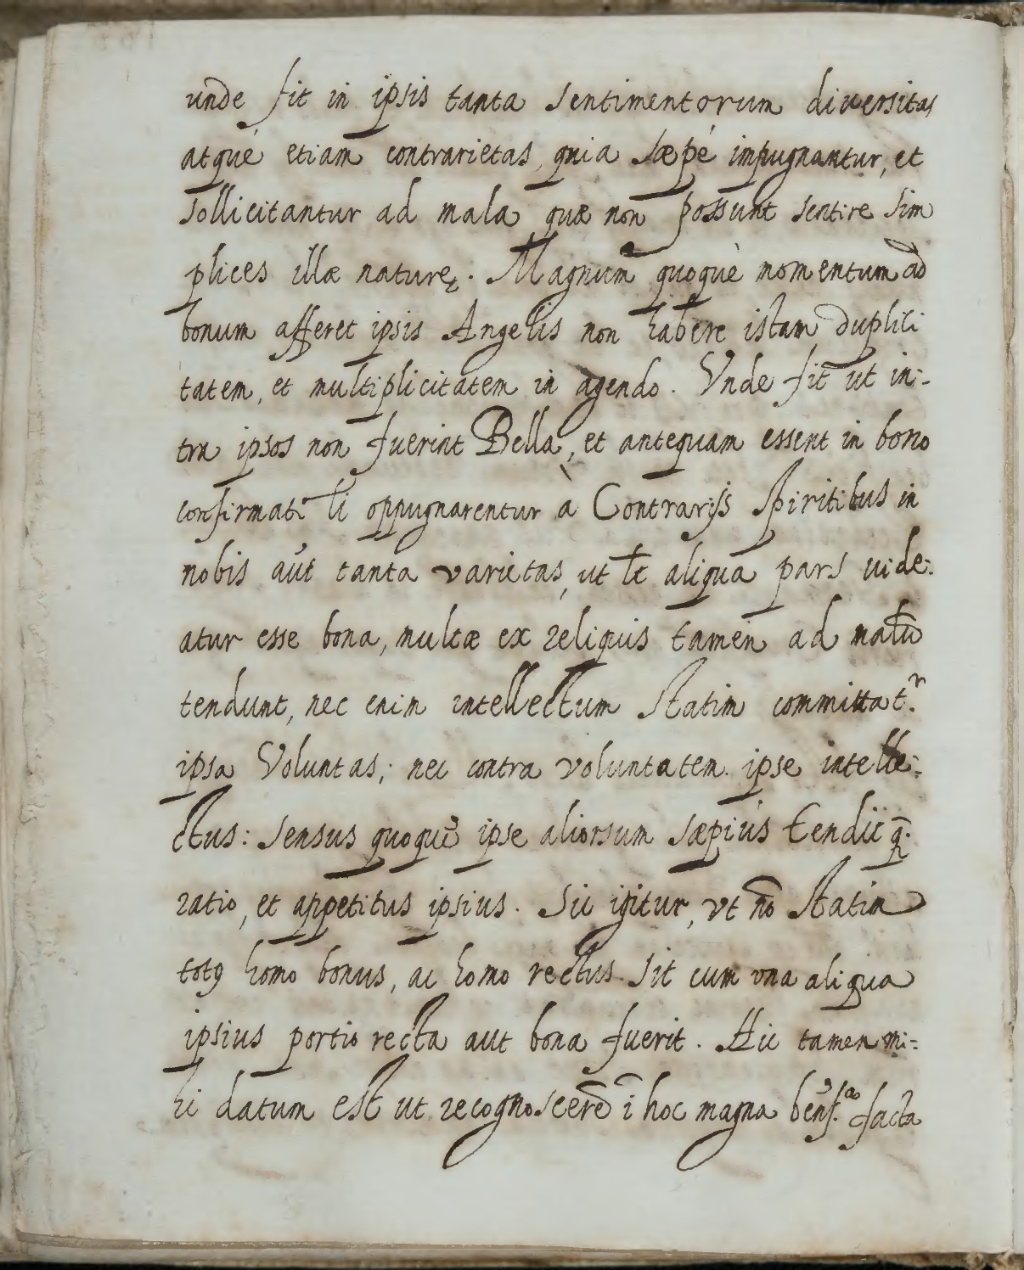 unde fit in ipsis tanta sentimentorum diuersitas
atque etiam contrarietas, quia sæpe impugnantur, et
sollicitantur ad mala quæ non possunt sentire sim
plices illæ naturę. Magnum quoquè momentum ad
bonum afferet ipsis Angelis non habere istam duplici
tatem, et multiplicitatem in agendo. Vnde fit ut in-
tra ipsos non fuerint Bella, et antequam essent in bono
confirmati li oppugnarentur à Contrarijs Spiritibus in
nobis aut tanta varietas, ut lt aliqua pars uide-
atur esse bona, multæ ex reliquis tamen ad malũ
tendunt, nec enim intellectum statim committat.r
ipsa Voluntas; nec contra voluntatem ipse intelle-
ctus: sensus quoque ipse aliorsum sæpius tendit q̃
ratio, et appetitus ipsius. Sic igitur, vt nõ statim
tot9 homo bonus, ac homo rectus sit cum vna aliqua
ipsius portio recta aut bona fuerit. Hic tamen mi-
hi datum est ut recognoscerẽ ĩ hoc magna facta